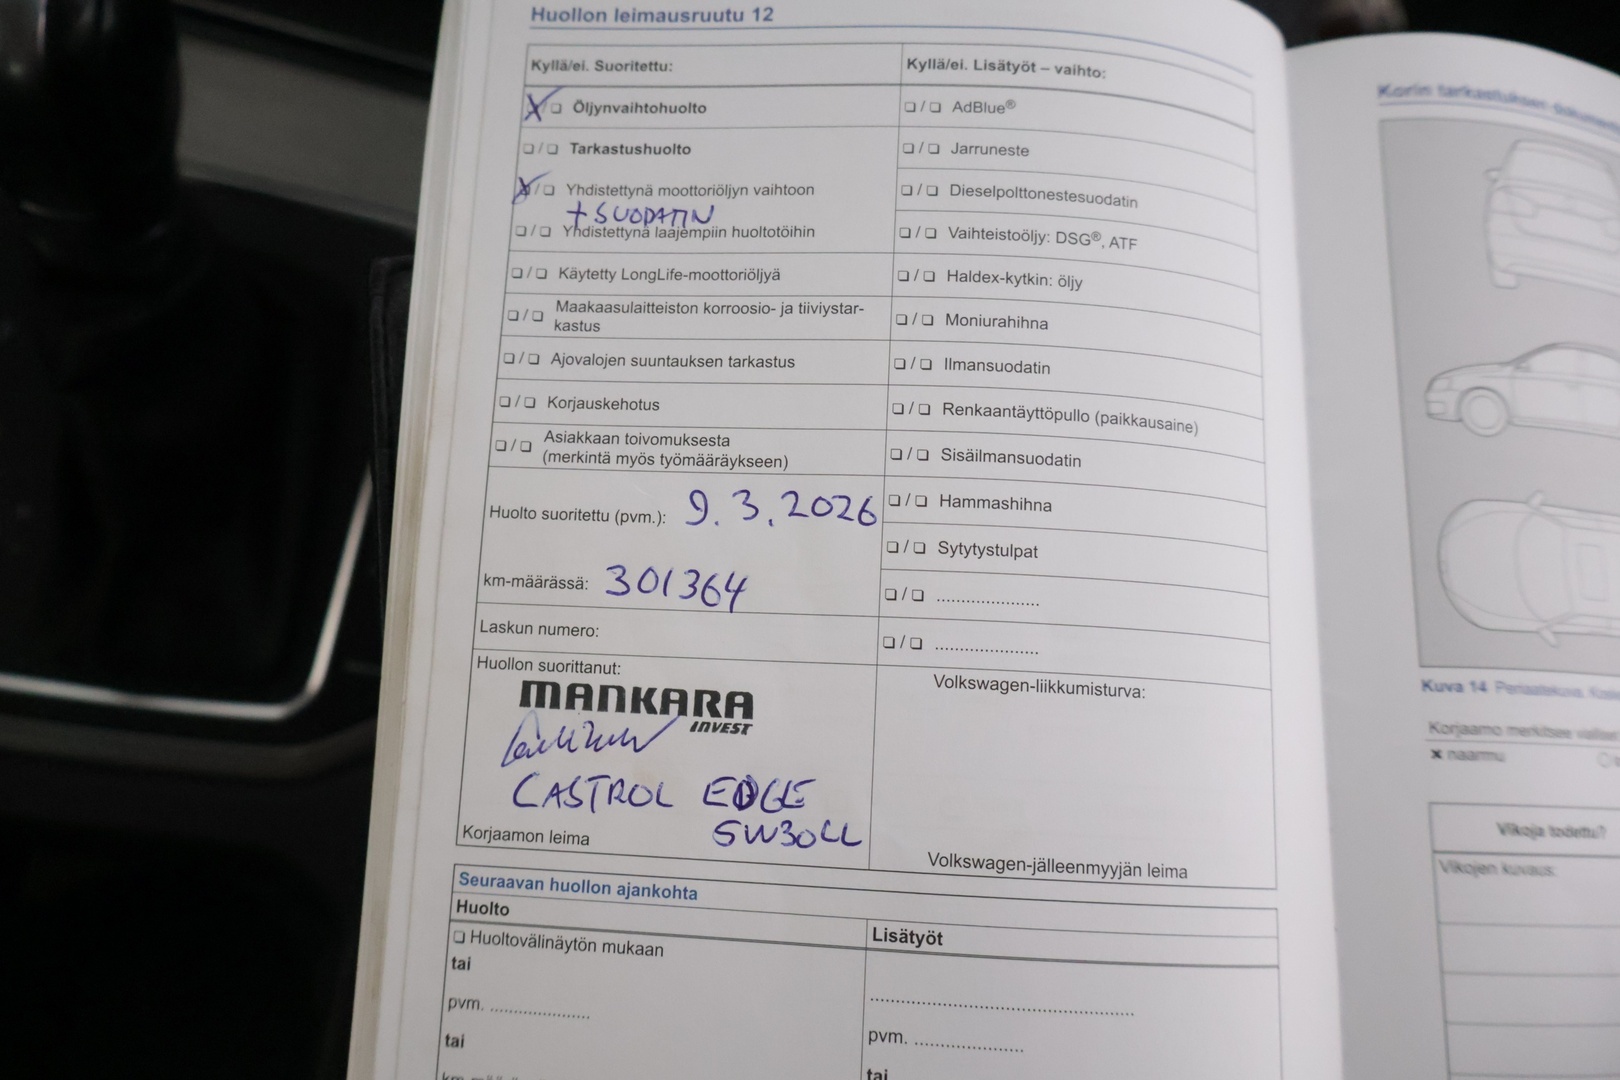 Huollon leimausruutu 12
Kyllä/ei. Suoritettu:
❏ Öljynvaihtohuolto
❏ / ❏ Tarkastushuolto
X / ❏ Yhdistettynä moottoriöljyn vaihtoon
+ SUODATIN
❏ / ❏ Yhdistettynä laajempiin huoltotöihin
❏ / ❏ Käytetty LongLife-moottoriöljyä
❏ / ❏ Maakaasulaitteiston korroosio- ja tiiviystar-
kastus
❏ / ❏ Ajovalojen suuntauksen tarkastus
❏ / ❏ Korjauskehotus
❏ / ❏ Asiakkaan toivomuksesta
(merkintä myös työmääräykseen)
Huolto suoritettu (pvm.): 9.3.2026
km-määrässä: 301364
Laskun numero:
Huollon suorittanut:
MANKARA
INVEST
CASTROL EDGE
5W30LL
Korjaamon leima
Kyllä/ei. Lisätyöt – vaihto:
❏ / ❏ AdBlue®
❏ / ❏ Jarruneste
❏ / ❏ Dieselpolttonestesuodatin
❏ / ❏ Vaihteistoöljy: DSG®, ATF
❏ / ❏ Haldex-kytkin: öljy
❏ / ❏ Moniurahihna
❏ / ❏ Ilmansuodatin
❏ / ❏ Renkaantäyttöpullo (paikkausaine)
❏ / ❏ Sisäilmansuodatin
❏ / ❏ Hammashihna
❏ / ❏ Sytytystulpat
❏ / ❏ .....................
❏ / ❏ .....................
Volkswagen-liikkumisturva:
Volkswagen-jälleenmyyjän leima
Seuraavan huollon ajankohta
Huolto
❏ Huoltovälinäytön mukaan
tai
pvm. ....................
tai
Lisätyöt
.....................................................
pvm. ......................
tai
Korin tarkastuksen
Kuva 14 Periaatekuva.
Korjaamo merkitsee
x naarmu
Vikoja todettu?
Vikojen kuvaus: